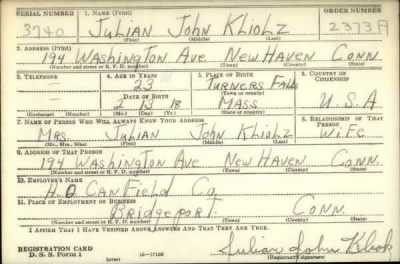 SERIAL NUMBER 1. NAME (Print) ORDER NUMBER
3740 Julian John Kliohz 2373A
(First) (Middle) (Last)
2. ADDRESS (Print)
194 Washington Ave New Haven Conn.
(Number and street or R. F. D. number) (Town) (County) (State)
3. TELEPHONE 4. AGE IN YEARS 5. PLACE OF BIRTH 6. COUNTRY OF CITIZENSHIP
— 23 Turners Falls
DATE OF BIRTH (Town or county)
— 2 13 18 Mass U.S.A
(Exchange) (Number) (Mo.) (Day) (Yr.) (State or country)
7. NAME OF PERSON WHO WILL ALWAYS KNOW YOUR ADDRESS 8. RELATIONSHIP OF THAT PERSON
Mrs. Julian John Kliohz Wife
(Mr., Mrs., Miss) (First) (Middle) (Last)
9. ADDRESS OF THAT PERSON
194 Washington Ave New Haven Conn.
(Number and street or R. F. D. number) (Town) (County) (State)
10. EMPLOYER'S NAME
H O Canfield Co
11. PLACE OF EMPLOYMENT OR BUSINESS
Bridgeport. Conn.
(Number and street or R. F. D. number) (Town) (County) (State)
I AFFIRM THAT I HAVE VERIFIED ABOVE ANSWERS AND THAT THEY ARE TRUE.
REGISTRATION CARD
D. S. S. Form 1 (over) Julian John
(Registrant's signature)